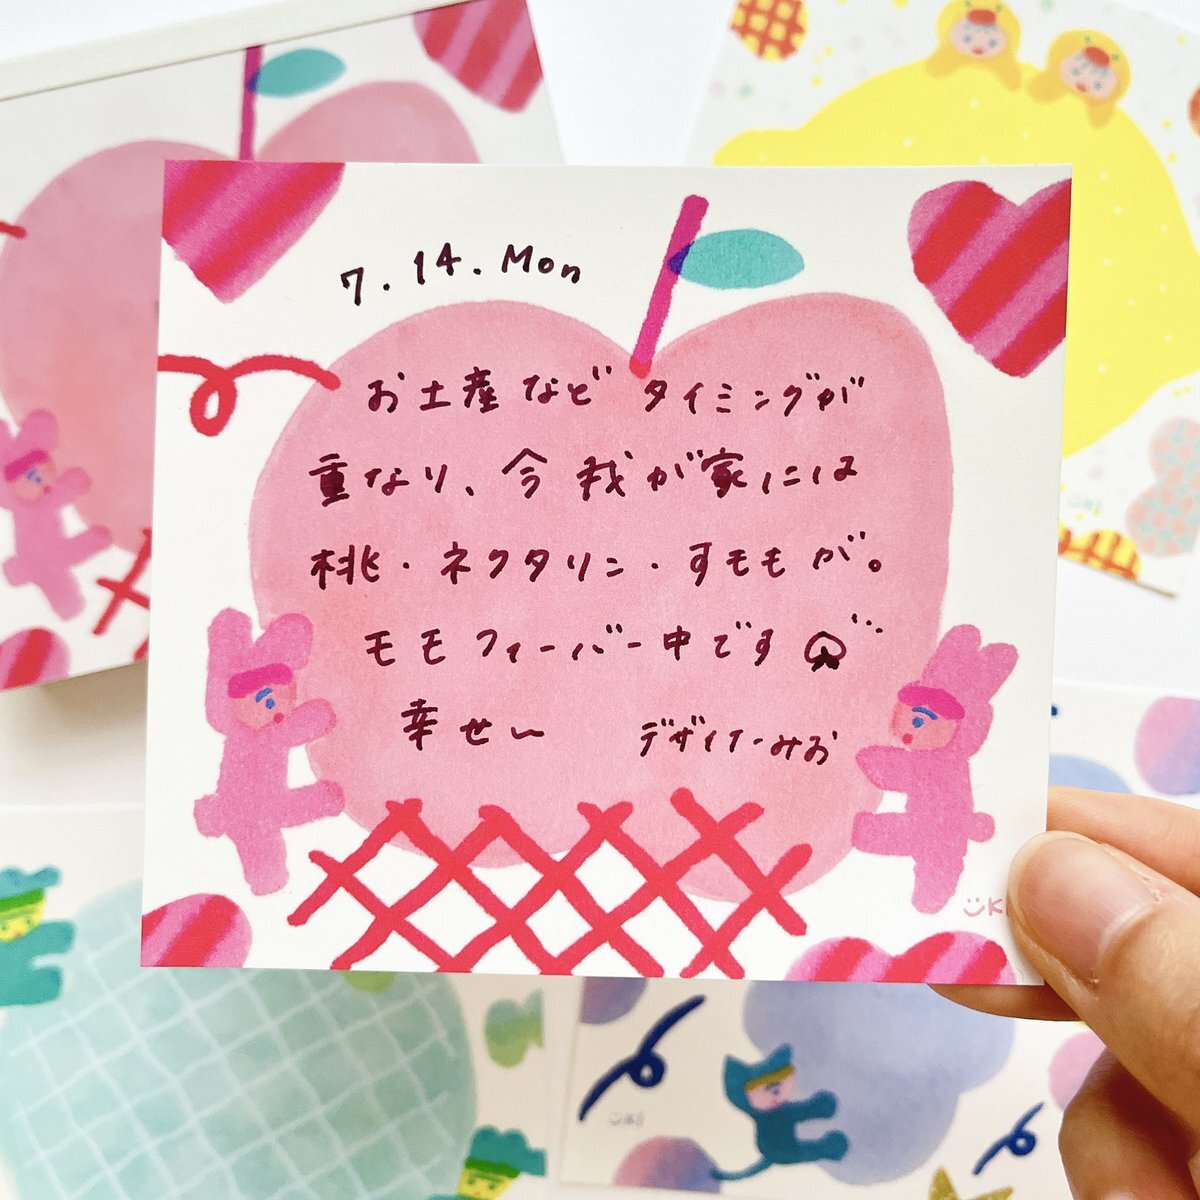 7.14.Mon
お土産などタイミングが
重なり、今我が家には
桃・ネクタリン・すモモが。
モモフィーバー中です
幸せ〜 デザイナーみお